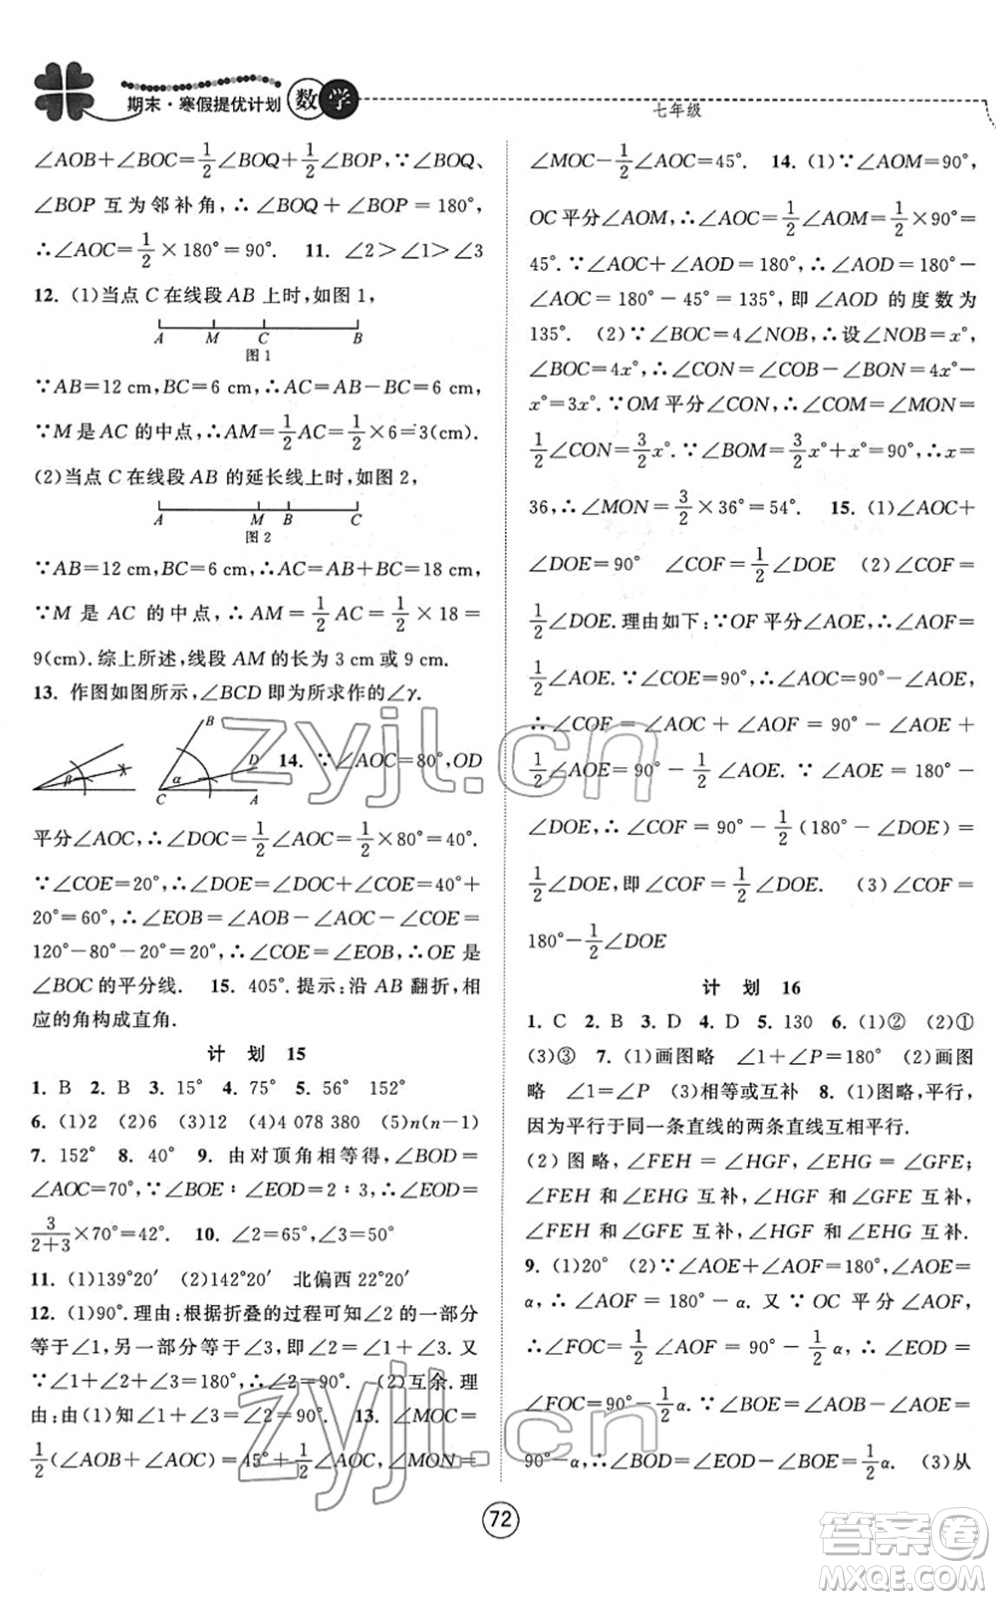 期末·寒假提优计划 数学
七年级
∠AOB+∠BOC=1/2∠BOQ+1/2∠BOP,∵∠BOQ、
∠BOP 互为邻补角,∴∠BOQ+∠BOP=180°,
∴∠AOC=1/2×180°=90°. 11. ∠2>∠1>∠3
12. (1)当点 C 在线段 AB 上时,如图 1,
A M C B
图 1
∵AB=12 cm,BC=6 cm,∴AC=AB-BC=6 cm.
∵M 是 AC 的中点,∴AM=1/2AC=1/2×6=3(cm).
(2)当点 C 在线段 AB 的延长线上时,如图 2,
A M B C
图 2
∵AB=12 cm,BC=6 cm,∴AC=AB+BC=18 cm,
∵M 是 AC 的中点,∴AM=1/2AC=1/2×18=
9(cm).综上所述,线段 AM 的长为 3 cm 或 9 cm.
13. 作图如图所示,∠BCD 即为所求作的∠γ.
β
B
D
α
C A
14. ∵∠AOC=80°,OD
平分∠AOC,∴∠DOC=1/2∠AOC=1/2×80°=40°.
∵∠COE=20°,∴∠DOE=∠DOC+∠COE=40°+
20°=60°,∴∠EOB=∠AOB-∠AOC-∠COE=
120°-80°-20°=20°,∴∠COE=∠EOB,∴OE 是
∠BOC 的平分线. 15. 405°.提示:沿 AB 翻折,相
应的角构成直角.
计 划 15
1. B 2. B 3. 15° 4. 75° 5. 56° 152°
6. (1)2 (2)6 (3)12 (4)4 078 380 (5)n(n-1)
7. 152° 8. 40° 9. 由对顶角相等得,∠BOD=
∠AOC=70°,∵∠BOE∶∠EOD=2∶3,∴∠EOD=
3/(2+3)×70°=42°. 10. ∠2=65°,∠3=50°
11. (1)139°20′ (2)142°20′ 北偏西 22°20′
12. (1)90°.理由:根据折叠的过程可知∠2 的一部分
等于∠1,另一部分等于∠3,即∠2=∠1+∠3.又
∵∠1+∠2+∠3=180°,∴∠2=90°. (2)互余.理
由:由(1)知∠1+∠3=∠2=90°. 13. ∠MOC=
1/2(∠AOB+∠AOC)=45°+1/2∠AOC,∠MON=
∠MOC-1/2∠AOC=45°. 14. (1)∵∠AOM=90°,
OC 平分∠AOM,∴∠AOC=1/2∠AOM=1/2×90°=
45°.∵∠AOC+∠AOD=180°,∴∠AOD=180°-
∠AOC=180°-45°=135°,即∠AOD 的度数为
135°. (2)∵∠BOC=4∠NOB,∴设∠NOB=x°,
∠BOC=4x°,∴∠CON=∠COB-∠BON=4x°-
x°=3x°.∵OM 平分∠CON,∴∠COM=∠MON=
1/2∠CON=3/2x°.∵∠BOM=3/2x°+x°=90°,∴x=
36,∴∠MON=3/2×36°=54°. 15. (1)∠AOC+
∠DOE=90° ∠COF=1/2∠DOE (2)∠COF=
1/2∠DOE.理由如下:∵OF 平分∠AOE,∴∠AOF=
1/2∠AOE.∵∠COE=90°,∴∠AOC=90°-∠AOE,
∴∠COF=∠AOC+∠AOF=90°-∠AOE+
1/2∠AOE=90°-1/2∠AOE.∵∠AOE=180°-
∠DOE,∴∠COF=90°-1/2(180°-∠DOE)=
1/2∠DOE,即∠COF=1/2∠DOE. (3)∠COF=
180°-1/2∠DOE
计 划 16
1. C 2. B 3. D 4. D 5. 130 6. (1)② (2)①
(3)③ 7. (1)画图略 ∠1+∠P=180° (2)画图
略 ∠1=∠P (3)相等或互补 8. (1)图略,平行,
因为平行于同一条直线的两条直线互相平行.
(2)图略,∠FEH=∠HGF,∠EHG=∠GFE;
∠FEH 和∠EHG 互补,∠HGF 和∠GFE 互补,
∠FEH 和∠GFE 互补,∠HGF 和∠EHG 互补.
9. (1)20° (2)∵∠AOE+∠AOF=180°,∠AOE=
α,∴∠AOF=180°-α.又∵OC 平分∠AOF,
∴∠FOC=1/2∠AOF=90°-1/2α,∴∠EOD=
∠FOC=90°-1/2α.∵∠BOE=∠AOB-∠AOE=
90°-α,∴∠BOD=∠EOD-∠BOE=1/2α. (3)从
72
zyjl.cn
zyjl.cn
答案圈
MXQE.COM